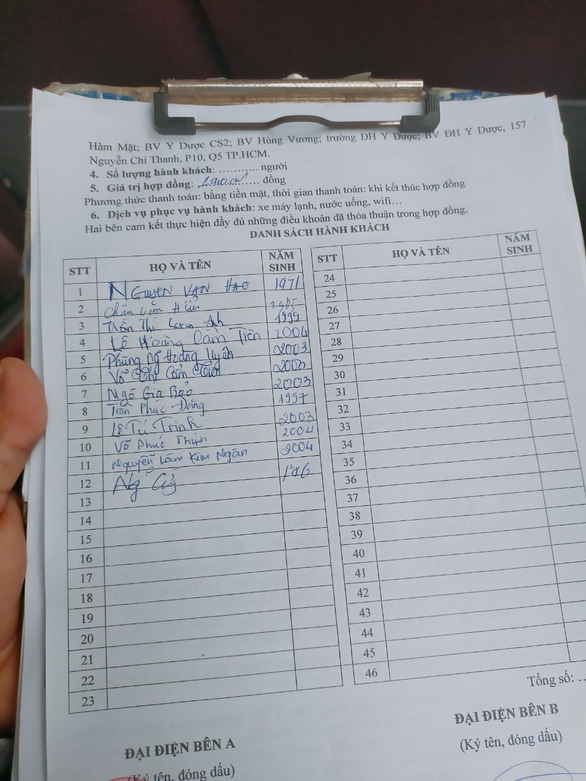 Hàm Mặt; BV Y Dược CS2; BV Hùng Vương; trường ĐH Y Dược; BV ĐH Y Dược, 157
Nguyễn Chí Thanh, P10, Q5 TP.HCM.
4. Số lượng hành khách: ………… người
5. Giá trị hợp đồng: ………… đồng
Phương thức thanh toán: bằng tiền mặt, thời gian thanh toán: khi kết thúc hợp đồng
6. Dịch vụ phục vụ hành khách: xe máy lạnh, nước uống, wifi…
Hai bên cam kết thực hiện đầy đủ những điều khoản đã thỏa thuận trong hợp đồng.
DANH SÁCH HÀNH KHÁCH
STT HỌ VÀ TÊN NĂM SINH STT HỌ VÀ TÊN NĂM SINH
1 NGUYỄN VAN HAO 1971
2
3 Trần Thị Anh 1999
4 Lê Hoàng Cẩm Tiên 2004
5 Phùng Hoàng Uyên 2003
6 Võ 2003
7 Ngô Gia Bảo 2003
8 Trần Phúc Đông 1997
9 Lê Tú Trinh 2003
10 Võ Phúc Thịnh 2004
11 Nguyễn Lâm Kim Ngân 2004
12
13
14
15
16
17
18
19
20
21
22
23
24
25
26
27
28
29
30
31
32
33
34
35
36
37
38
39
40
41
42
43
44
45
46
Tổng số: ..
ĐẠI DIỆN BÊN A
(Ký tên, đóng dấu)
ĐẠI DIỆN BÊN B
(Ký tên, đóng dấu)